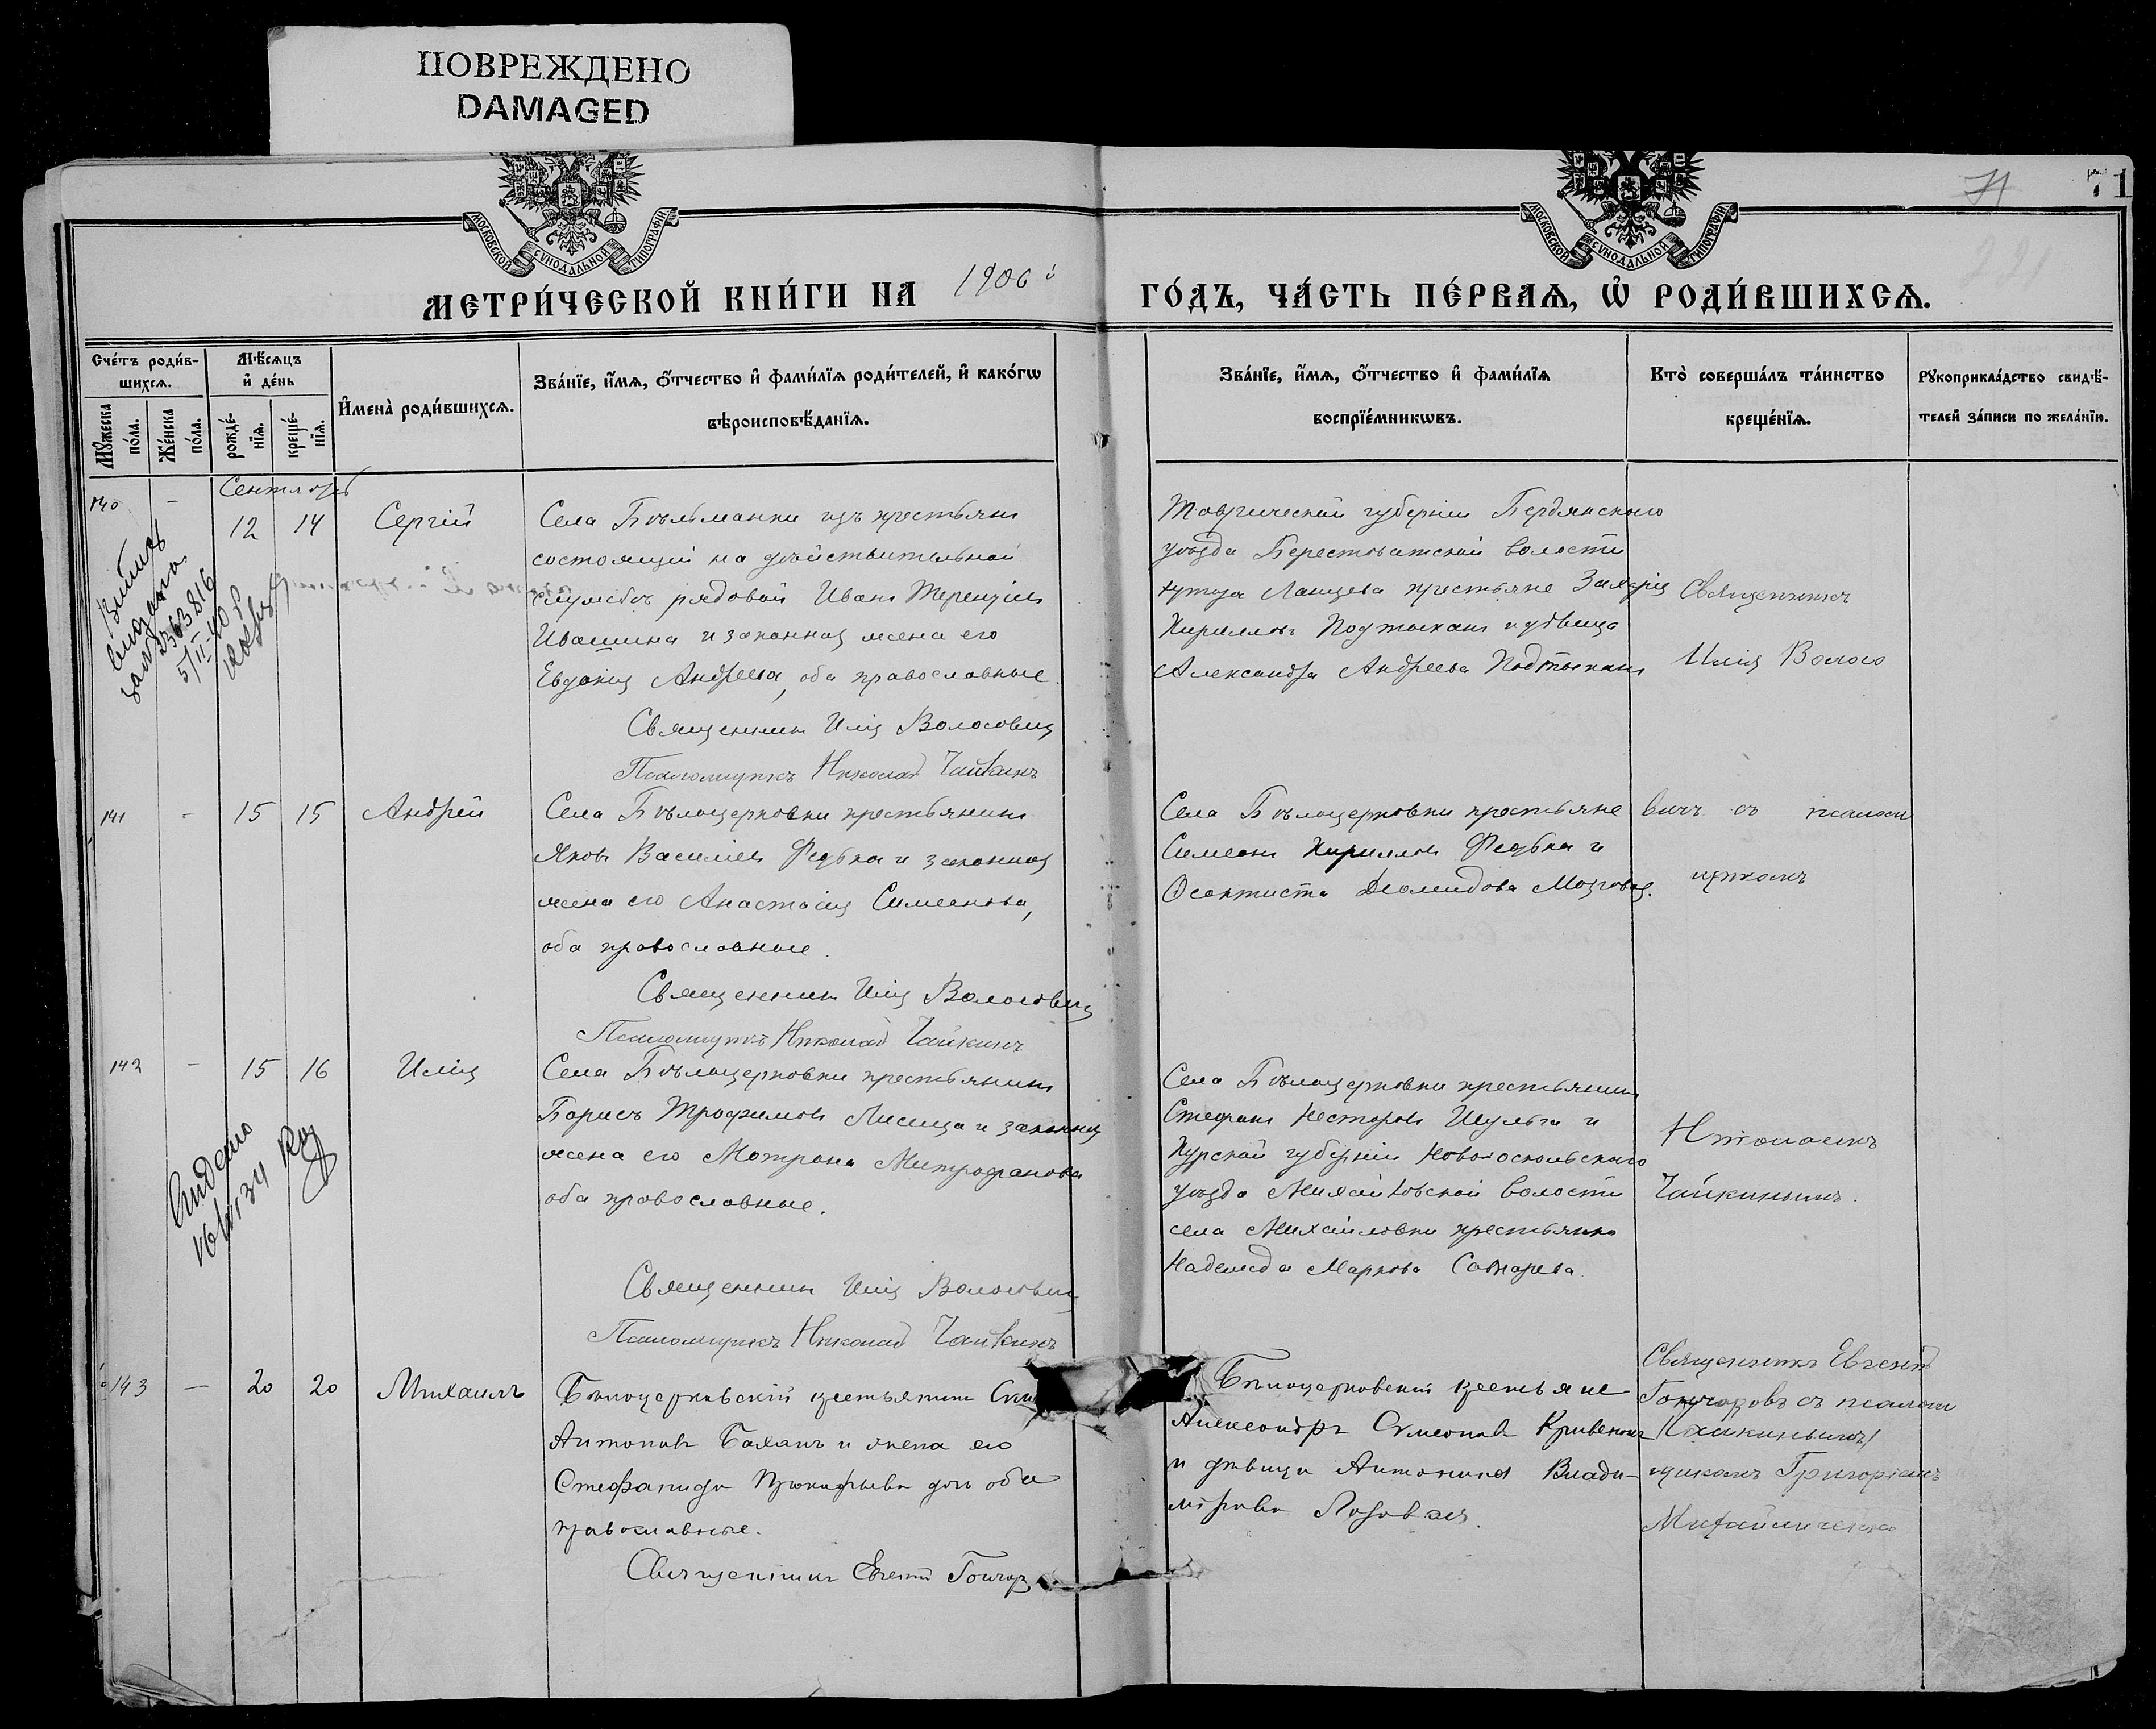 ПОВРЕЖДЕНО
DAMAGED
МОСКОВСКОЙ СѴНОДАЛЬНОЙ ТИПОГРАФІИ
МОСКОВСКОЙ СѴНОДАЛЬНОЙ ТИПОГРАФІИ
71
71
МЕТРИ́ЧЕСКОЙ КНИ́ГИ НА 1906й
ГО́ДЪ, ЧА́СТЬ ПЕ́РВАѦ, Ѡ҆ РОДИ́ВШИХСѦ.
Сче́тъ роди́в-
шихсѧ.
Мꙋжеска по́ла.
Же́нска по́ла.
Мѣ́сѧцъ
и҆ де́нь
рожде́-
нїѧ.
креще́-
нїѧ.
И҆мена̀ роди́вшихсѧ.
Зва́нїе, и҆́мѧ, ѻ҆́тчество и҆ фами́лїѧ роди́телей, и҆ како́гѡ
вѣроисповѣ́данїѧ.
Зва́нїе, и҆́мѧ, ѻ҆́тчество и҆ фами́лїѧ
воспрїе́мникѡвъ.
Кто̀ соверша́лъ та́инство
креще́нїѧ.
Рꙋкоприкла́дство свидѣ́-
телей за́писи по жела́нїю.
Сентябрь
140 - 12 14 Сергій
Села Бѣльманки изъ крестьянъ
состоящій на дѣйствительной
службѣ рядовой Иванъ Терентіевъ
Ивашина и законная жена его
Евдокія Андреева, оба православные.
Священникъ Илія Волосовичъ
Псаломщикъ Николай Чайкинъ
Таврической губерніи Бердянскаго
уѣзда Берестоватской волости
хутора Ланцева крестьяне Захарій
Кирилловъ Подтыканъ и дѣвица
Александра Андреева Подтыканъ
Священникъ
Илія Волосо
выдана
5/II-40 г
141 - 15 15 Андрей
Села Бѣлоцерковки крестьянинъ
Яковъ Василіевъ Федька и законная
жена его Анастасія Симеонова,
оба православные.
Священникъ Илія Волосовичъ
Псаломщикъ Николай Чайкинъ
Села Бѣлоцерковки крестьяне
Симеонъ Кирилловъ Федька и
Ѳеоктиста Діомидова Мозговая.
вичъ съ псалом
щикомъ
142 - 15 16 Илія
Села Бѣлоцерковки крестьянинъ
Борисъ Трофимовъ Лисица и законная
жена его Матрона Митрофанова
оба православные.
Священникъ Илія Волосовичъ
Псаломщикъ Николай Чайкинъ
Села Бѣлоцерковки крестьянинъ
Стефанъ Несторовъ Шульга и
Курской губерніи Новооскольскаго
уѣзда Михайловской волости
села Михайловки крестьянка
Надежда Маркова
Николаемъ
Чайкинымъ.
143 — 20 20 Михаилъ
Бѣлоцерковскій крестьянинъ
Антоновъ Баханъ и жена его
Стефанида Прокофьева оба
православные.
Священникъ Евгеній Гончар
Бѣлоцерковскіе крестьяне
Александръ Симеоновъ Кривенко
и дѣвица Антонина Влади-
мірова Лозовая.
Священникъ Евгеній
Гончаровъ съ псалом
щикомъ Григоріемъ
Михайличенко